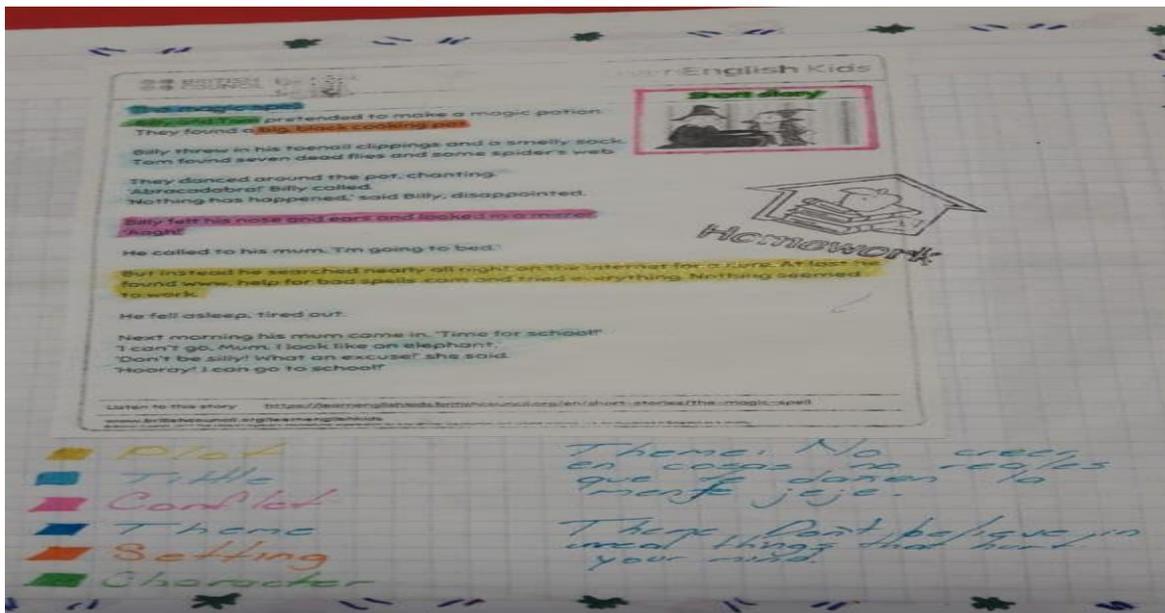 BRITISH
COUNCIL
English Kids
The magic spel
Short diary
Billy and Tom pretended to make a magic potion.
They found a big, black cooking pot.
Billy threw in his toenail clippings and a smelly sock.
Tom found seven dead flies and some spider's web.
They danced around the pot, chanting.
'Abracadabra!' Billy called.
'Nothing has happened,' said Billy, disappointed.
Billy felt his nose and ears and looked in a mirror.
'Aagh!'
Homework
He called to his mum, 'I'm going to bed.'
But instead he searched nearly all night on the internet for a cure. At last he
found www. help for bad spells.com and tried everything. Nothing seemed
to work.
He fell asleep, tired out.
Next morning his mum came in. 'Time for school!'
'I can't go, Mum. I look like an elephant.'
'Don't be silly! What an excuse!' she said.
'Hooray! I can go to school!'
Listen to this story https://learnenglishkids.britishcouncil.org/en/short-stories/the-magic-spell
www.britishcouncil.org/learnenglishkids
Plot
Tittle
Conflot
Theme
Setting
Character
Theme: No creer
en cosas no reales
que te dañen la
mente jeje.
Theme Don't believe in
unreal things that hurt
your mind.